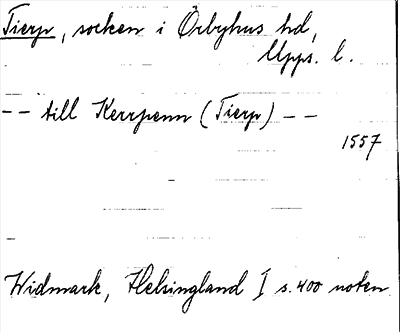 Tierp, socken i Örbyhus hd,
Upps. l.
-- till Kerrpenn (Tierp) --
1557
Widmark, Helsingland I s. 400 noten